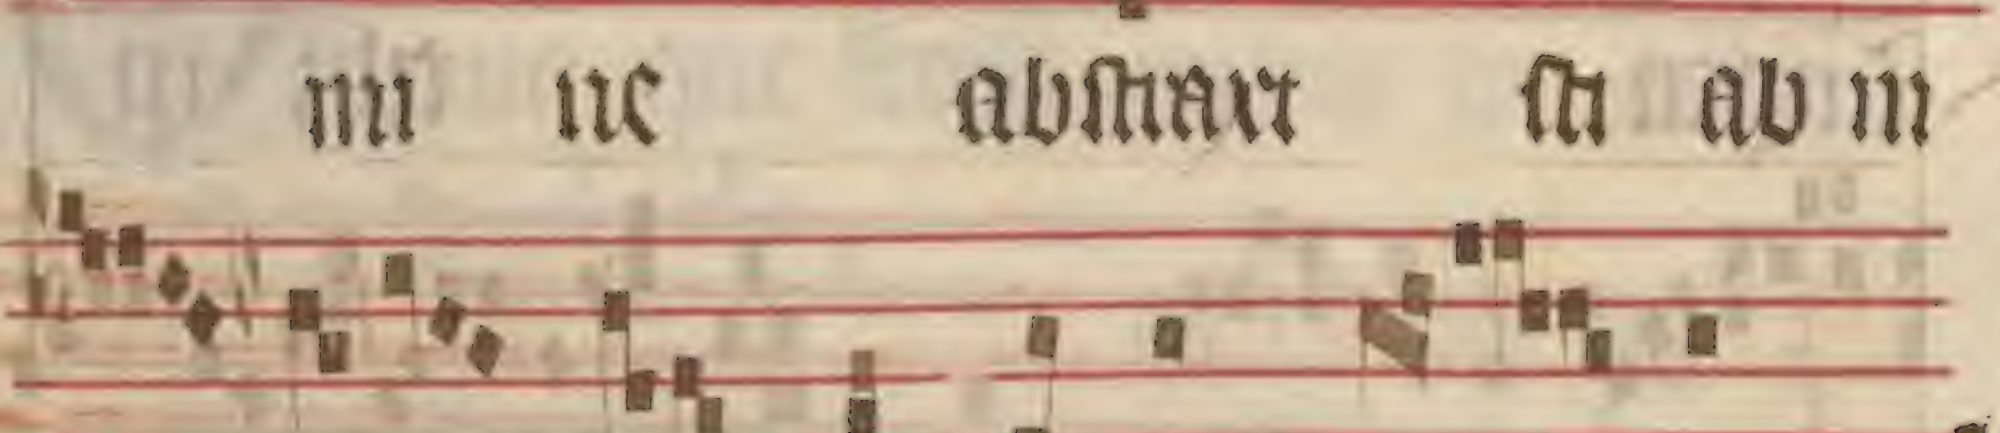 mi ne abstraxi sti ab in